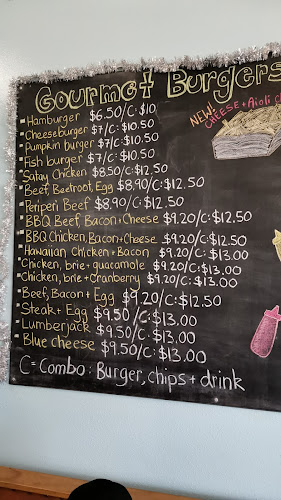 Gourmet Burgers
Hamburger $6.50/C:$10
Cheeseburger $7/C:$10.50
Pumpkin burger $7/C:$10.50
Fish burger $7/C:$10.50
Satay Chicken $8.50/C:$12.50
Beef, Beetroot, Egg $8.90/C:$12.50
Periperi Beef $8.90/C:$12.50
BBQ Beef, Bacon+Cheese $9.20/C:$12.50
BBQ Chicken, Bacon+Cheese $9.20/C:$12.50
Hawaiian Chicken+Bacon $9.20/C:$13.00
Chicken, brie+guacamole $9.20/C:$13.00
Chicken, brie+Cranberry $9.20/C:$13.00
Beef, Bacon+Egg $9.20/C:$12.50
Steak+Egg $9.50/C:$13.00
Lumberjack $9.50/C:$13.00
Blue cheese $9.50/C:$13.00
C=Combo: Burger, chips+drink
NEW!
CHEESE+Aioli